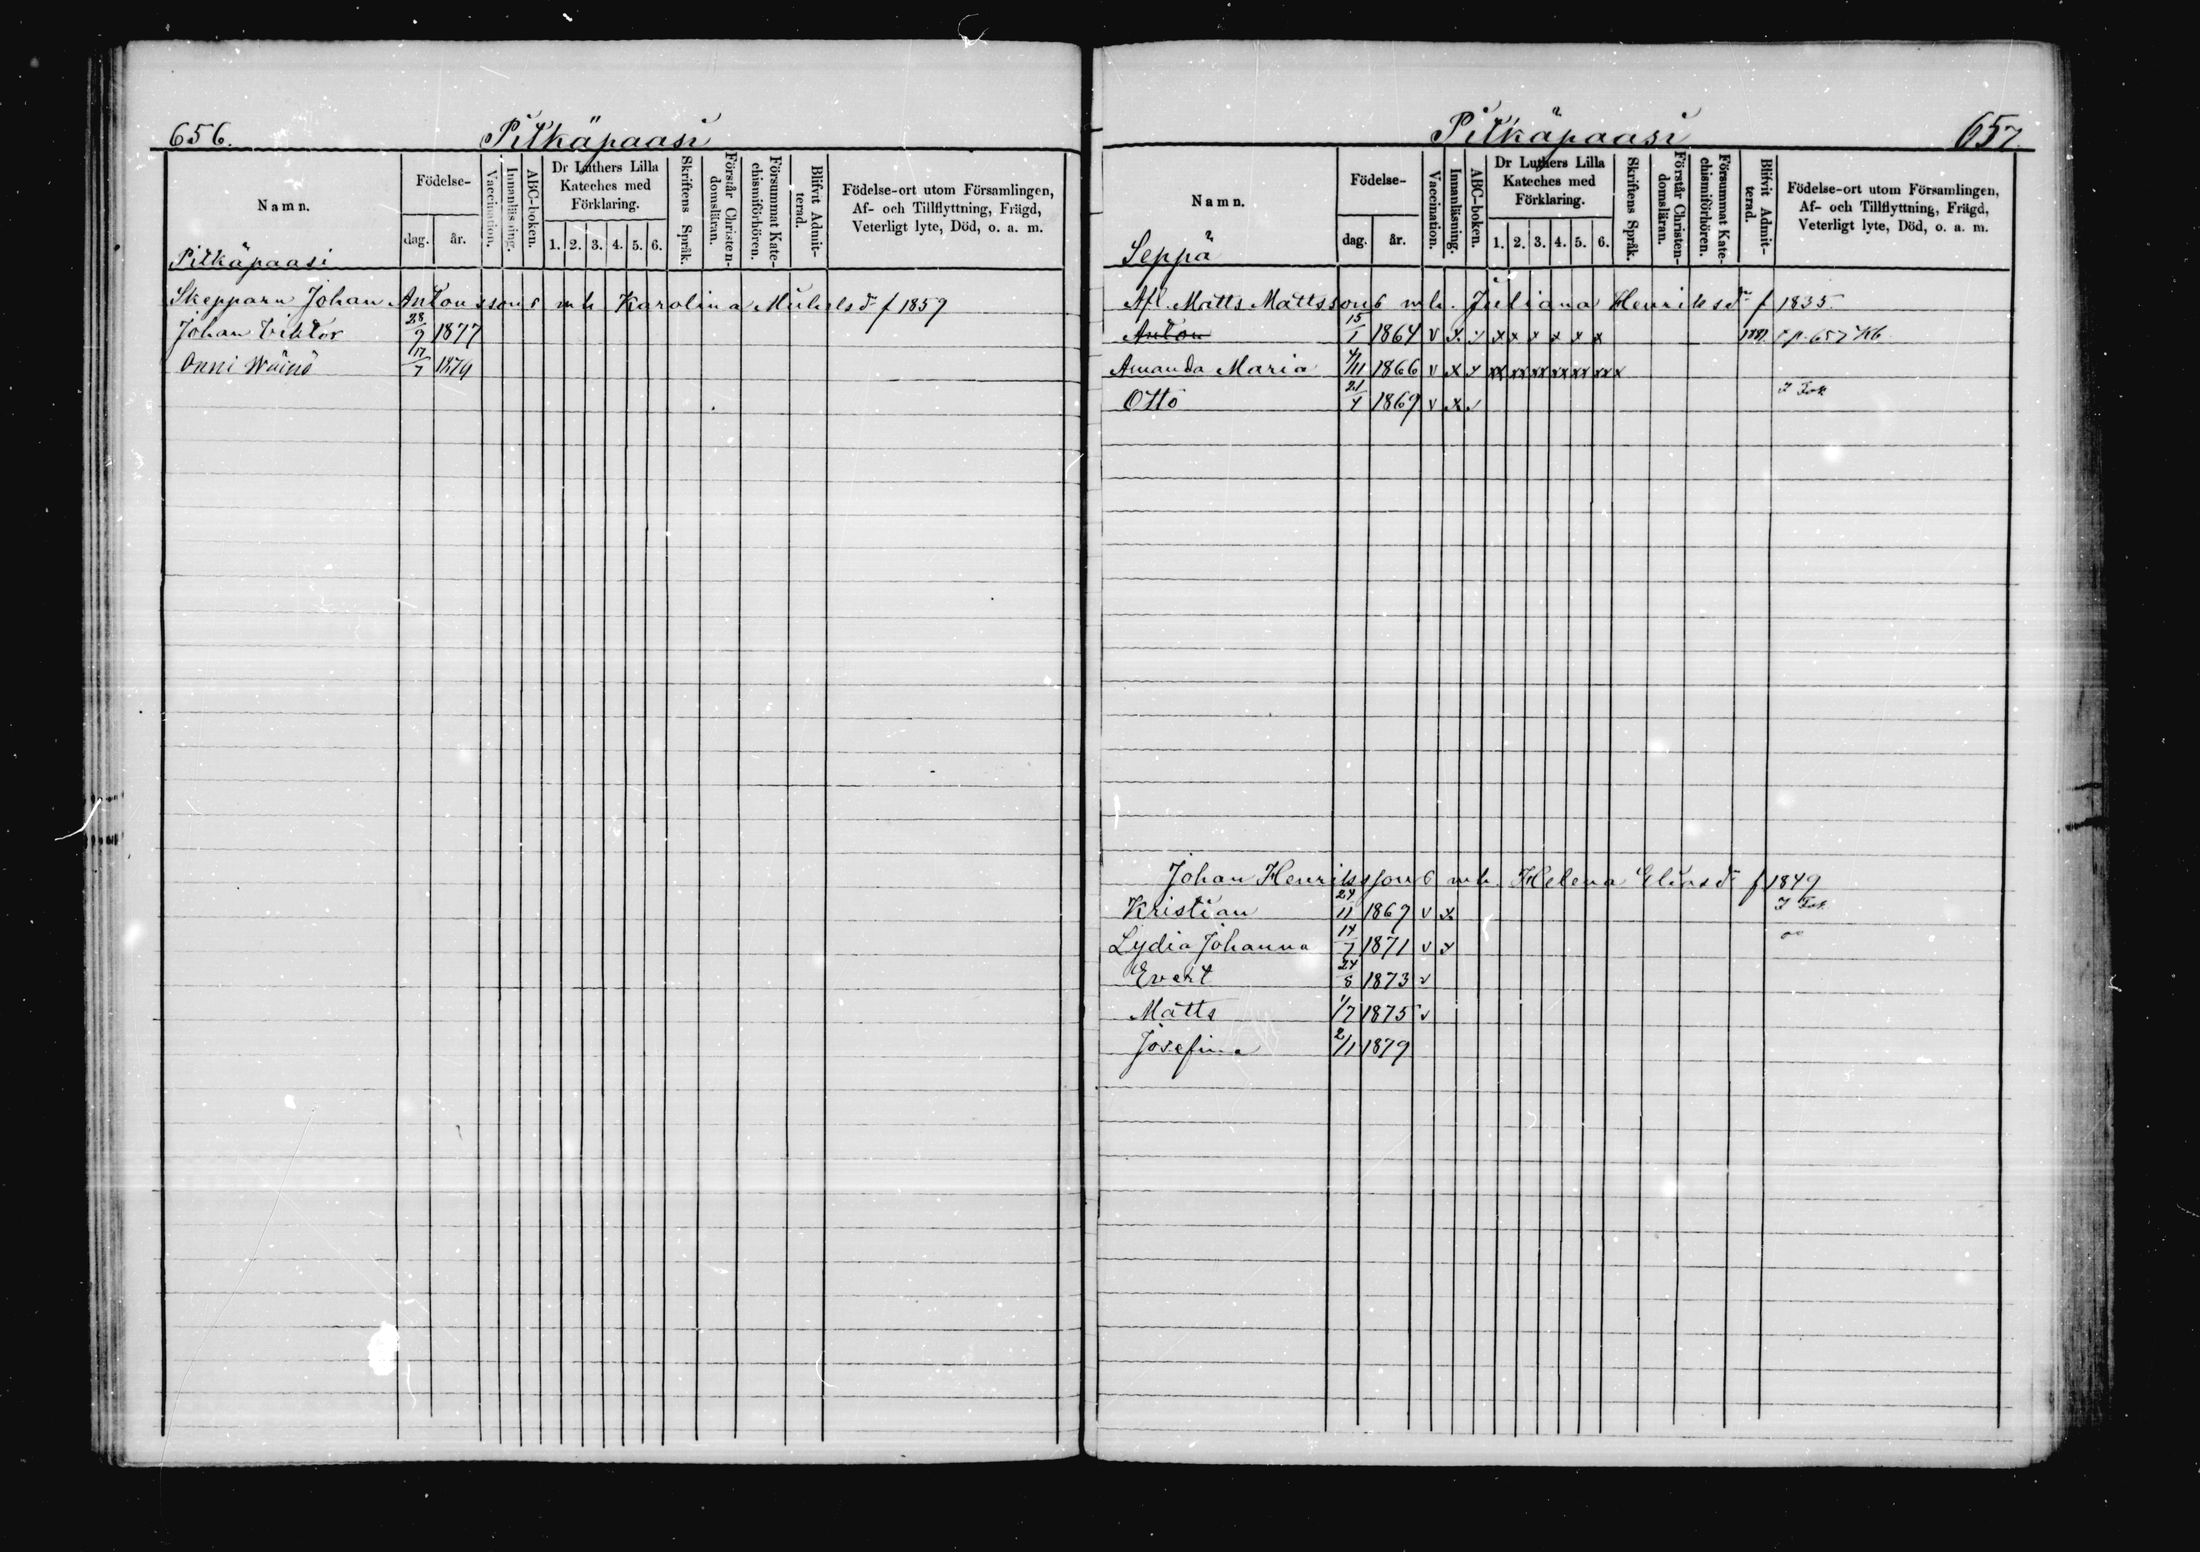 656.
Pitkäpaasi
Namn.
Födelse-
dag.
år.
Vaccination.
Innanläsning.
ABC-boken.
Dr Luthers Lilla
Kateches med
Förklaring.
1. 2. 3. 4. 5. 6.
Skriftens Språk.
Förstår Christen-
domsläran.
Försummat Kate-
chismiförhören.
Blifvit Admit-
terad.
Födelse-ort utom Församlingen,
Af- och Tillflyttning, Frägd,
Veterligt lyte, Död, o. a. m.
Pitkäpaasi
Skepparn Johan Antonssons mh Karolina Michelsdr f 1859
Johan Viktor 28/9 1877
Onni Wäinö 17/7 1879
Pitkäpaasi
657.
Namn.
Födelse-
dag.
år.
Vaccination.
Innanläsning.
ABC-boken.
Dr Luthers Lilla
Kateches med
Förklaring.
1. 2. 3. 4. 5. 6.
Skriftens Språk.
Förstår Christen-
domsläran.
Försummat Kate-
chismiförhören.
Blifvit Admit-
terad.
Födelse-ort utom Församlingen,
Af- och Tillflyttning, Frägd,
Veterligt lyte, Död, o. a. m.
Seppä
Afl. Matts Mattssons mh. Juliana Henriksdr f 1835
Anton 15/1 1864 v x x x x x x x x p. 657 Kb
Amanda Maria 4/11 1866 v x x xx xx xx xx xx xx x
Otto 21/4 1869 v x
Johan Henrikssons mh. Helena Eliasdr f 1849
Kristian 24/11 1869 v x
Lydia Johanna 14/7 1871 v x
Evert 24/8 1873 v
Matts 1/7 1875 v
Josefina 2/1 1879